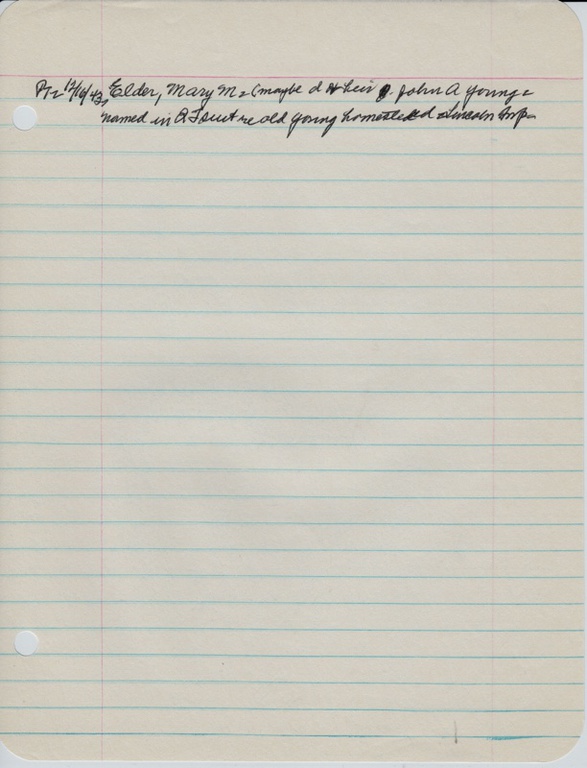 12/16/43, Elder, Mary M = (maybe d & heir John A Young =
named in Q T suit re old Young homestead Lincoln Twp =